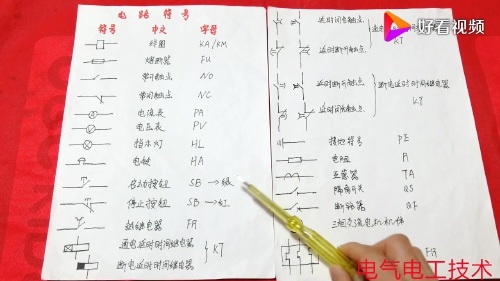 好看视频
电路符号
符号 中文 字母
线圈 KA/KM
熔断器 FU
常开触点 NO
常闭触点 NC
电流表 PA
电压表 PV
指示灯 HL
电铃 HA
启动按钮 SB→绿
停止按钮 SB→红
热继电器 FR
通电延时时间继电器
断电延时时间继电器 KT
延时闭合触点
延时断开触点
KT
延时断开触点
延时闭合触点
断电延时时间继电器
KT
接地符号 PE
电阻 R
互感器 TA
隔离开关 QS
断路器 QF
三相交流电机
FR
电气电工技术